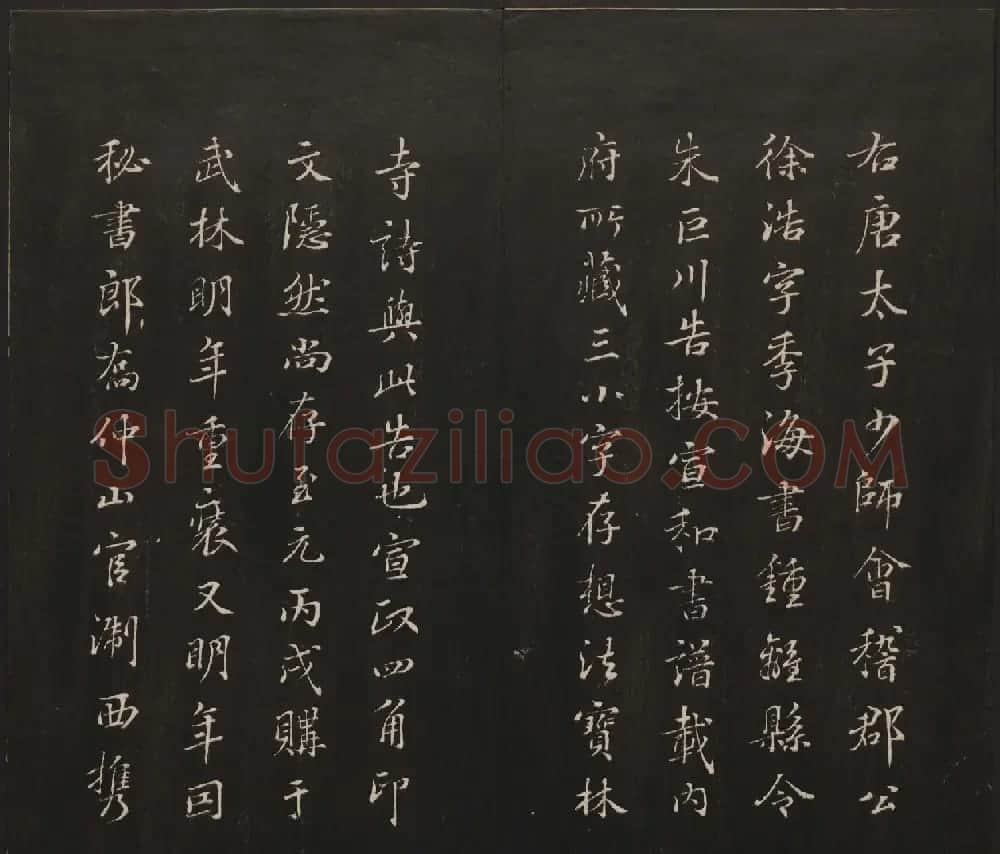 右唐太子少師會稽郡公
徐浩字季海書鍾離縣令
朱巨川告按宣和書譜載内
府所藏三小字存想法寶林
寺詩與此告也宣政四角印
文隱然尚存至元丙戌購于
武林明年重裝又明年因
秘書郎喬仲山官淛西携
Shufaziliao.COM